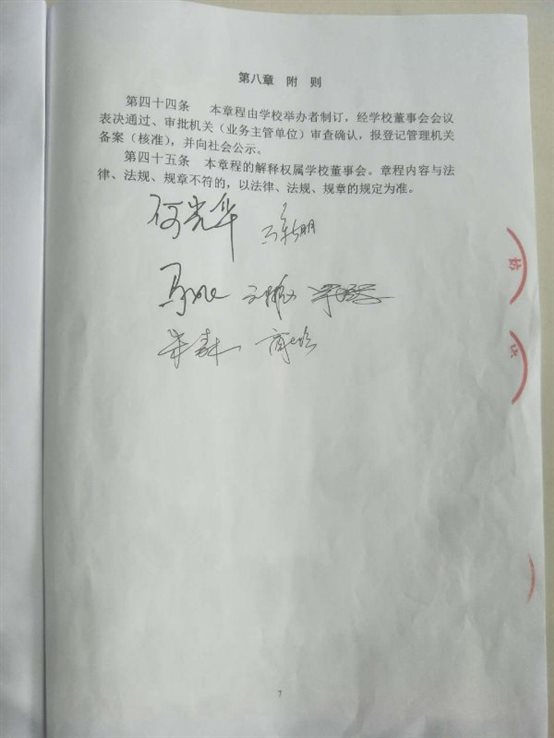 第八章 附 则
第四十四条 本章程由学校举办者制订，经学校董事会会议
表决通过、审批机关（业务主管单位）审查确认，报登记管理机关
备案（核准），并向社会公示。
第四十五条 本章程的解释权属学校董事会。章程内容与法
律、法规、规章不符的，以法律、法规、规章的规定为准。
何光华
7